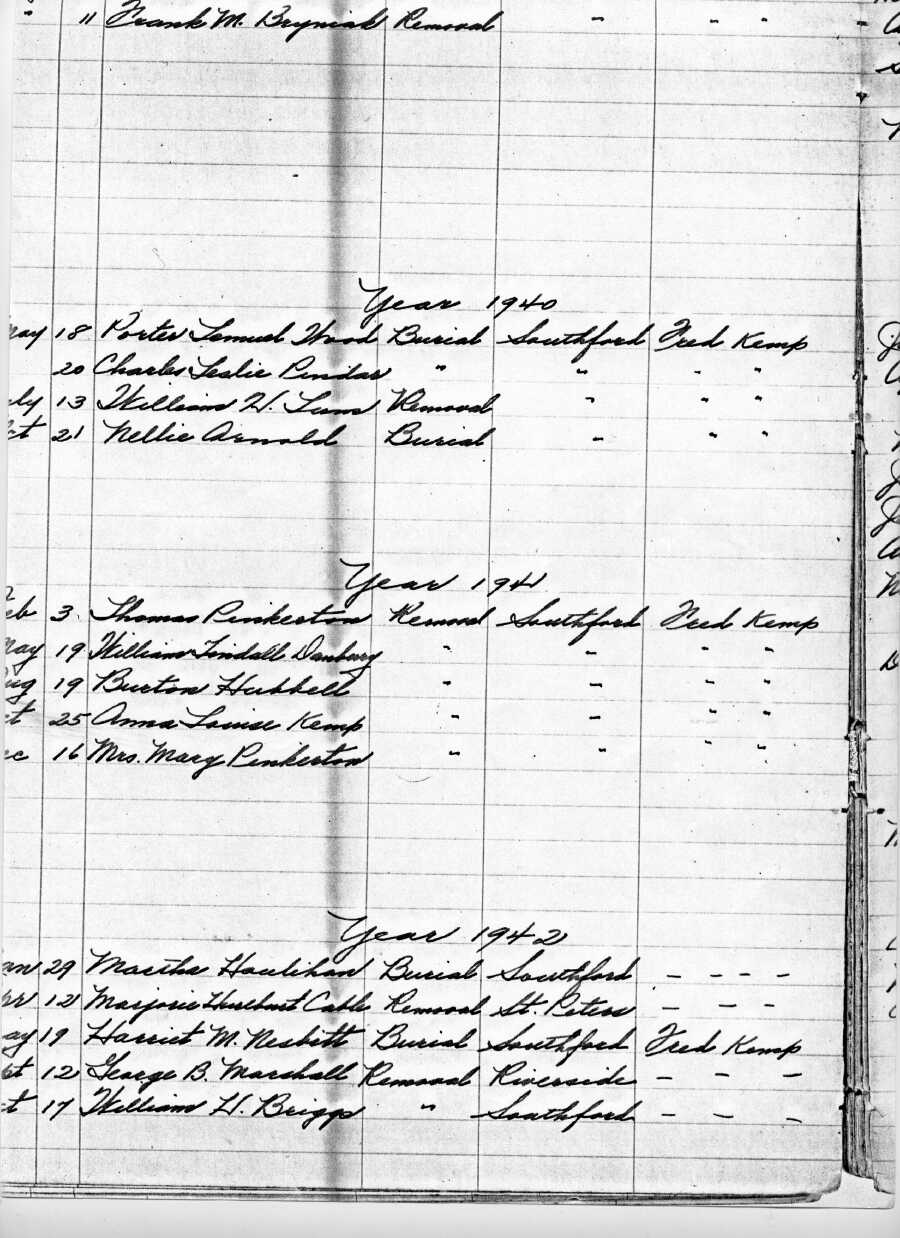 " 11 Frank M. Bryniak Removal " " "
Year 1940
May 18 Porter Samuel Wood Burial Southford Fred Kemp
20 Charles Leslie Pindar " " " "
July 13 William H. Lum Removal " " "
Oct 21 Nellie Arnold Burial " " "
Year 1941
Feb 3. Thomas Pinkerton Removal Southford Fred Kemp
May 19 William Tindall Danbury " " " "
Aug 19 Burton Hubbell " " " "
ct 25 Anna Louise Kemp " " " "
ec 16 Mrs. Mary Pinkerton " " " "
Year 1942
an 29 Martha Houlihan Burial Southford - - - -
pr 12 Marjorie Hurlburt Cable Removal St. Peters - - -
ay 19 Harriet M. Nesbitt Burial Southford Fred Kemp
pt 12 George B. Marshall Removal Riverside - - -
ct 17 William H. Briggs " Southford - - -